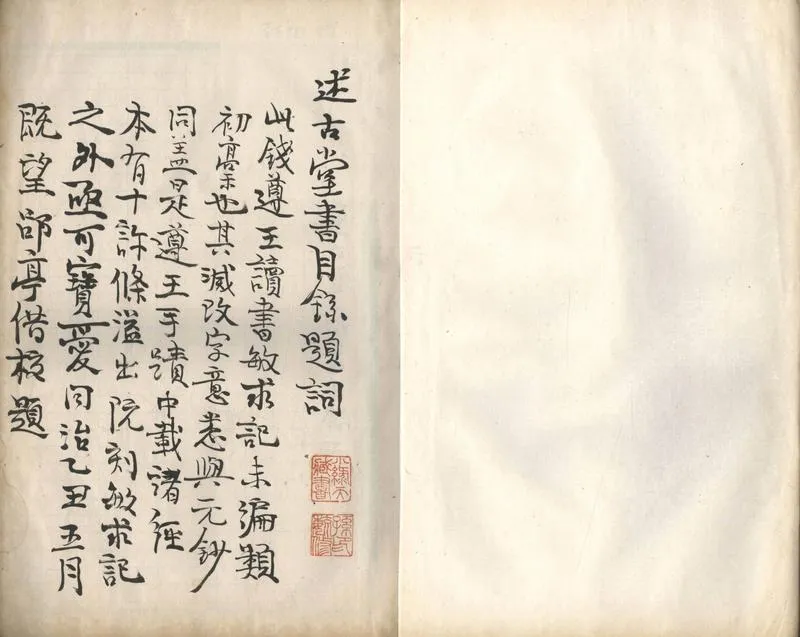 述古堂書目錄題詞
此錢遵王讀書敏求記未編類
初稾也其滅改字意悉與元鈔
同蓋是遵王手蹟中載諸經
本有十許條溢出阮刻敏求記
之外亟可寶愛同治乙丑五月
既望郘亭借校題